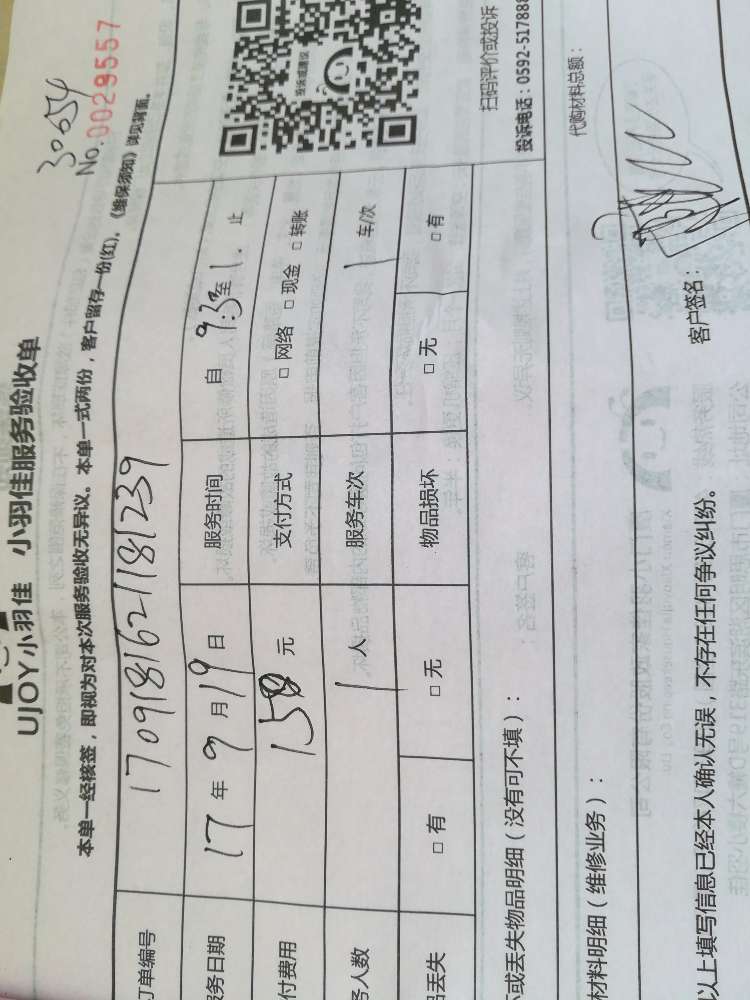 30654
No.0029557
UJOY小羽佳 小羽佳服务验收单
本单一经核签，即视为对本次服务验收无异议。本单一式两份，客户留存一份(红)。《维保须知》详见背面。
订单编号 170918162118181239
务日期 17 年 9 月 19 日 服务时间 自 9:3 至 1. 止
付费用 150 元 支付方式 □ 网络 □ 现金 □ 转账
务人数 1 人 服务车次 1 车/次
品丢失 □ 有 □ 无 物品损坏 □ 无 □ 有
投诉或建议
扫码评价或投诉
投诉电话：0592-517888
或丢失物品明细（没有可不填）：
代购材料总额：
材料明细（维修业务）：
以上填写信息已经本人确认无误，不存在任何争议纠纷。
客户签名：